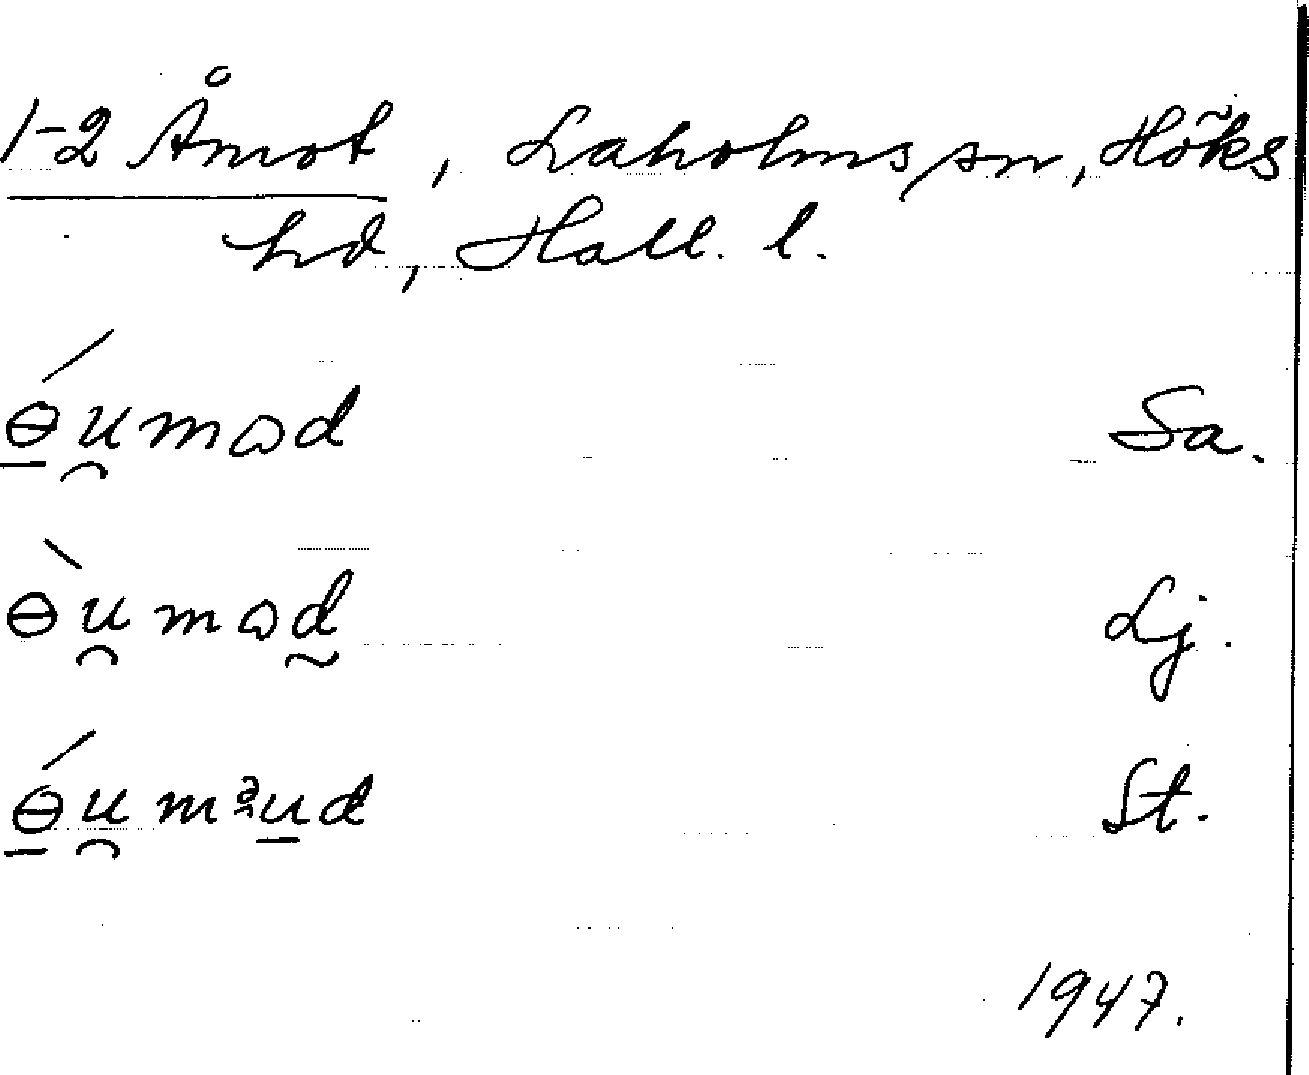 1-2 Åmot, Laholms sn, Höks
hd, Hall. l.
ɵ́u̯mɷd Sa.
ɵ̀u̯mɷd̰ Lj.
ɵ́u̯mud St.
1947.